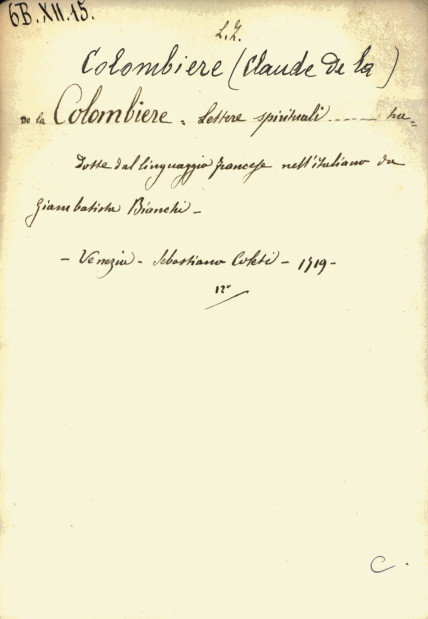 6B.XII.15.
L. Z.
Colombiere (Claude de la)
De la Colombiere = Lettere spirituali ------ tra=
dotte dal linguaggio francese nell'italiano da
Giambatista Bianchi -
- Venezia - Sebastiano Coleti - 1719 -
12°
C.